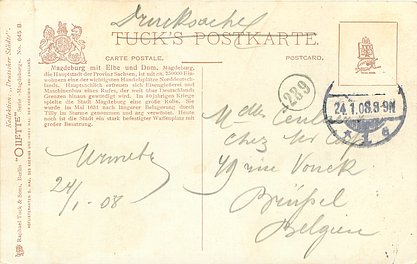 Drucksache
TUCK'S POSTKARTE.
CARTE POSTALE.
POSTCARD.
Magdeburg mit Elbe und Dom. Magdeburg,
die Hauptstadt der Provinz Sachsen, ist mit ca. 250000 Ein-
wohnern eine der wichtigsten Handelsplätze Norddeutsch-
lands. Hauptsächlich erfreuen sich Eisengießerei und
Maschinenbau eines Rufes, der weit über Deutschlands
Grenzen hinaus geworden ist. Im 30jährigen Kriege
spielte die Stadt Magdeburg eine große Rolle. Sie
wurde im Mai 1631 nach längerer Belagerung durch
Tilly im Sturme genommen und arg verwüstet. Heute
noch ist die Stadt ein stark befestigter Waffenplatz mit
großer Besatzung.
Kollektion "Deutsche Städte".
OILETTE
Serie "Magdeburg". No. 645 B.
Raphael Tuck & Sons, Berlin
239
24.1.08.8-9N
24/1-08
Melle
Chez Mr
49 rue Vonck
Brüssel
Belgien